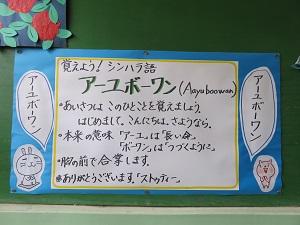 覚えよう！シンハラ語
アーユボーワン(Aayuboowan)
・あいさつは このひとことを覚えましょう。
はじめまして。こんにちは。さようなら。
・本来の意味「アーユ」は「長い命」
「ボーワン」は「つづくように」
・胸の前で合掌します。
・ありがとうございます。「ストゥティー」
アーユボーワン
アーユボーワン